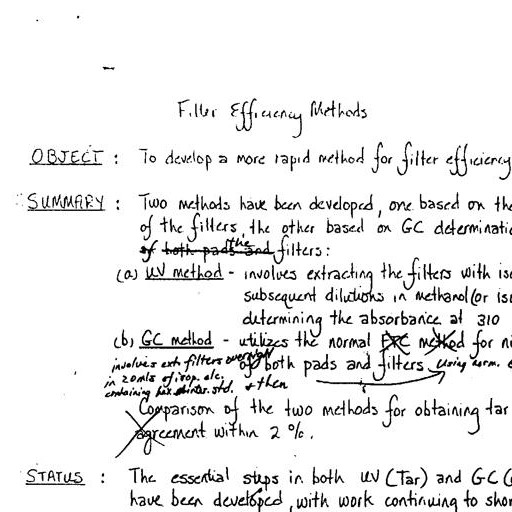 Filter Efficiency Methods
OBJECT : To develop a more rapid method for filter efficiency
SUMMARY : Two methods have been developed, one based on the
of the filters, the other based on GC
of both pads and the filters:
(a) UV method - involves extracting the filters with
subsequent dilutions in methanol (or
determining the absorbance at 310
(b) GC method - utilizes the normal method for
involves ext. filters overnight of both pads and filters using norm.
in 20mls of isop. alc. & then
containing int. std.
Comparison of the two methods for obtaining tar
agreement within 2 %.
STATUS : The essential steps in both UV (Tar) and GC
have been developed, with work continuing to